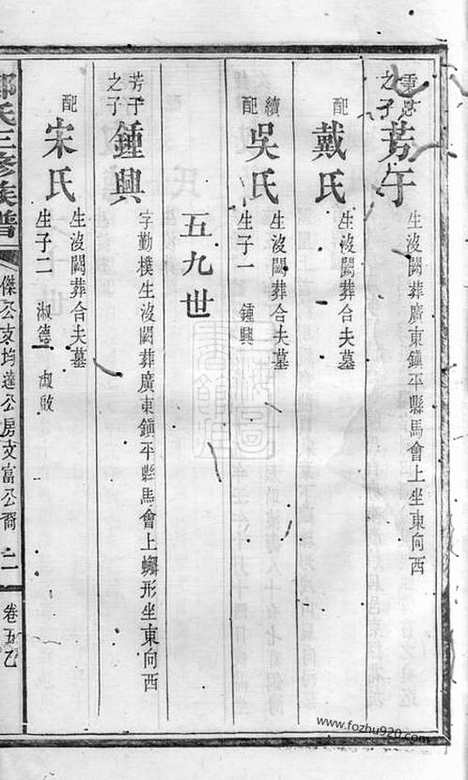 之子 芳午 生沒闕葬廣東鎮平縣馬會上坐東向西
配 戴氏 生沒闕葬合夫墓
續配 吳氏 生沒闕葬合夫墓
生子一 鍾興
五九世
芳午之子 鍾興 字勤樸生沒闕葬廣東鎮平縣馬會上形坐東向西
配 宋氏 生沒闕葬合夫墓
生子二 淑德 淑啟
氏三修族譜
傑公支均蓮公房文富公裔 卷五乙
www.fozhu920.com